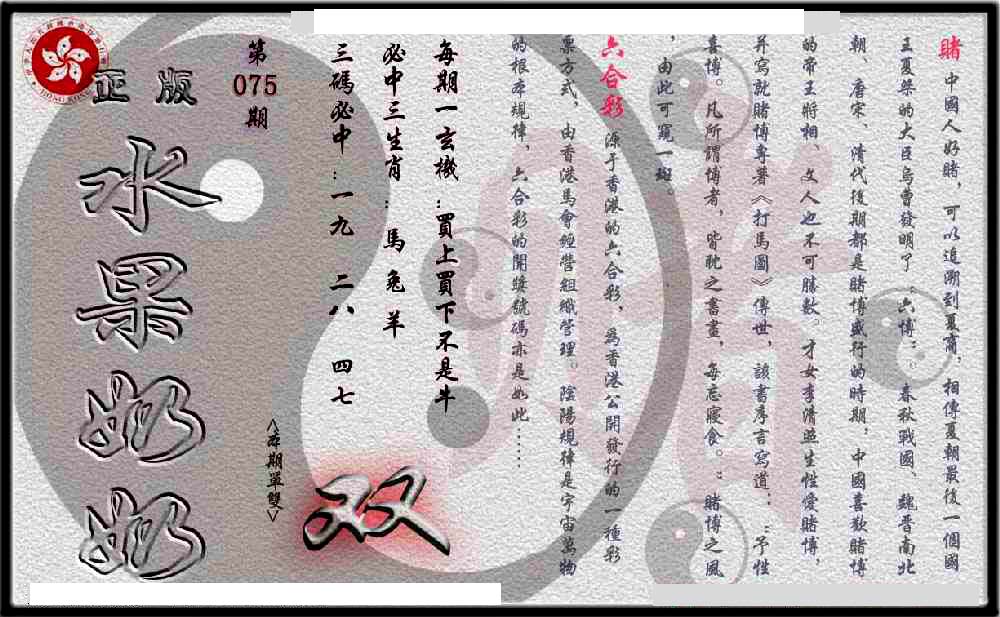 賭 中國人好賭，可以追溯到夏商．相傳夏朝最後一個國
王夏桀的大臣烏曹發明了：六博：。春秋戰國、魏晉南北
朝、唐宋、清代後期都是賭博盛行的時期，中國喜歡賭博
的帝王將相、文人也不可勝數。才女李清照生性愛賭博，
并寫就賭博專著《打馬圖》傳世，該書序言寫道：：予性
喜博。凡所謂博者，皆耽之晝晝，每忘寢食。：賭博之風
，由此可窺一斑。
六合彩 源于香港的六合彩，為香港公開發行的一種彩
票方式，由香港馬會經營組織管理。陰陽規律是宇宙萬物
的根本規律，六合彩的開獎號碼亦是如此……
每期一玄機：買上買下不是牛
必中三生肖：馬 兔 羊
三碼必中：一九 二八 四七
第
075
期
<本期單雙>
双
正版
水果奶奶